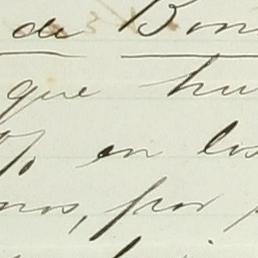 de Bon
que hu
% en los
nos, por